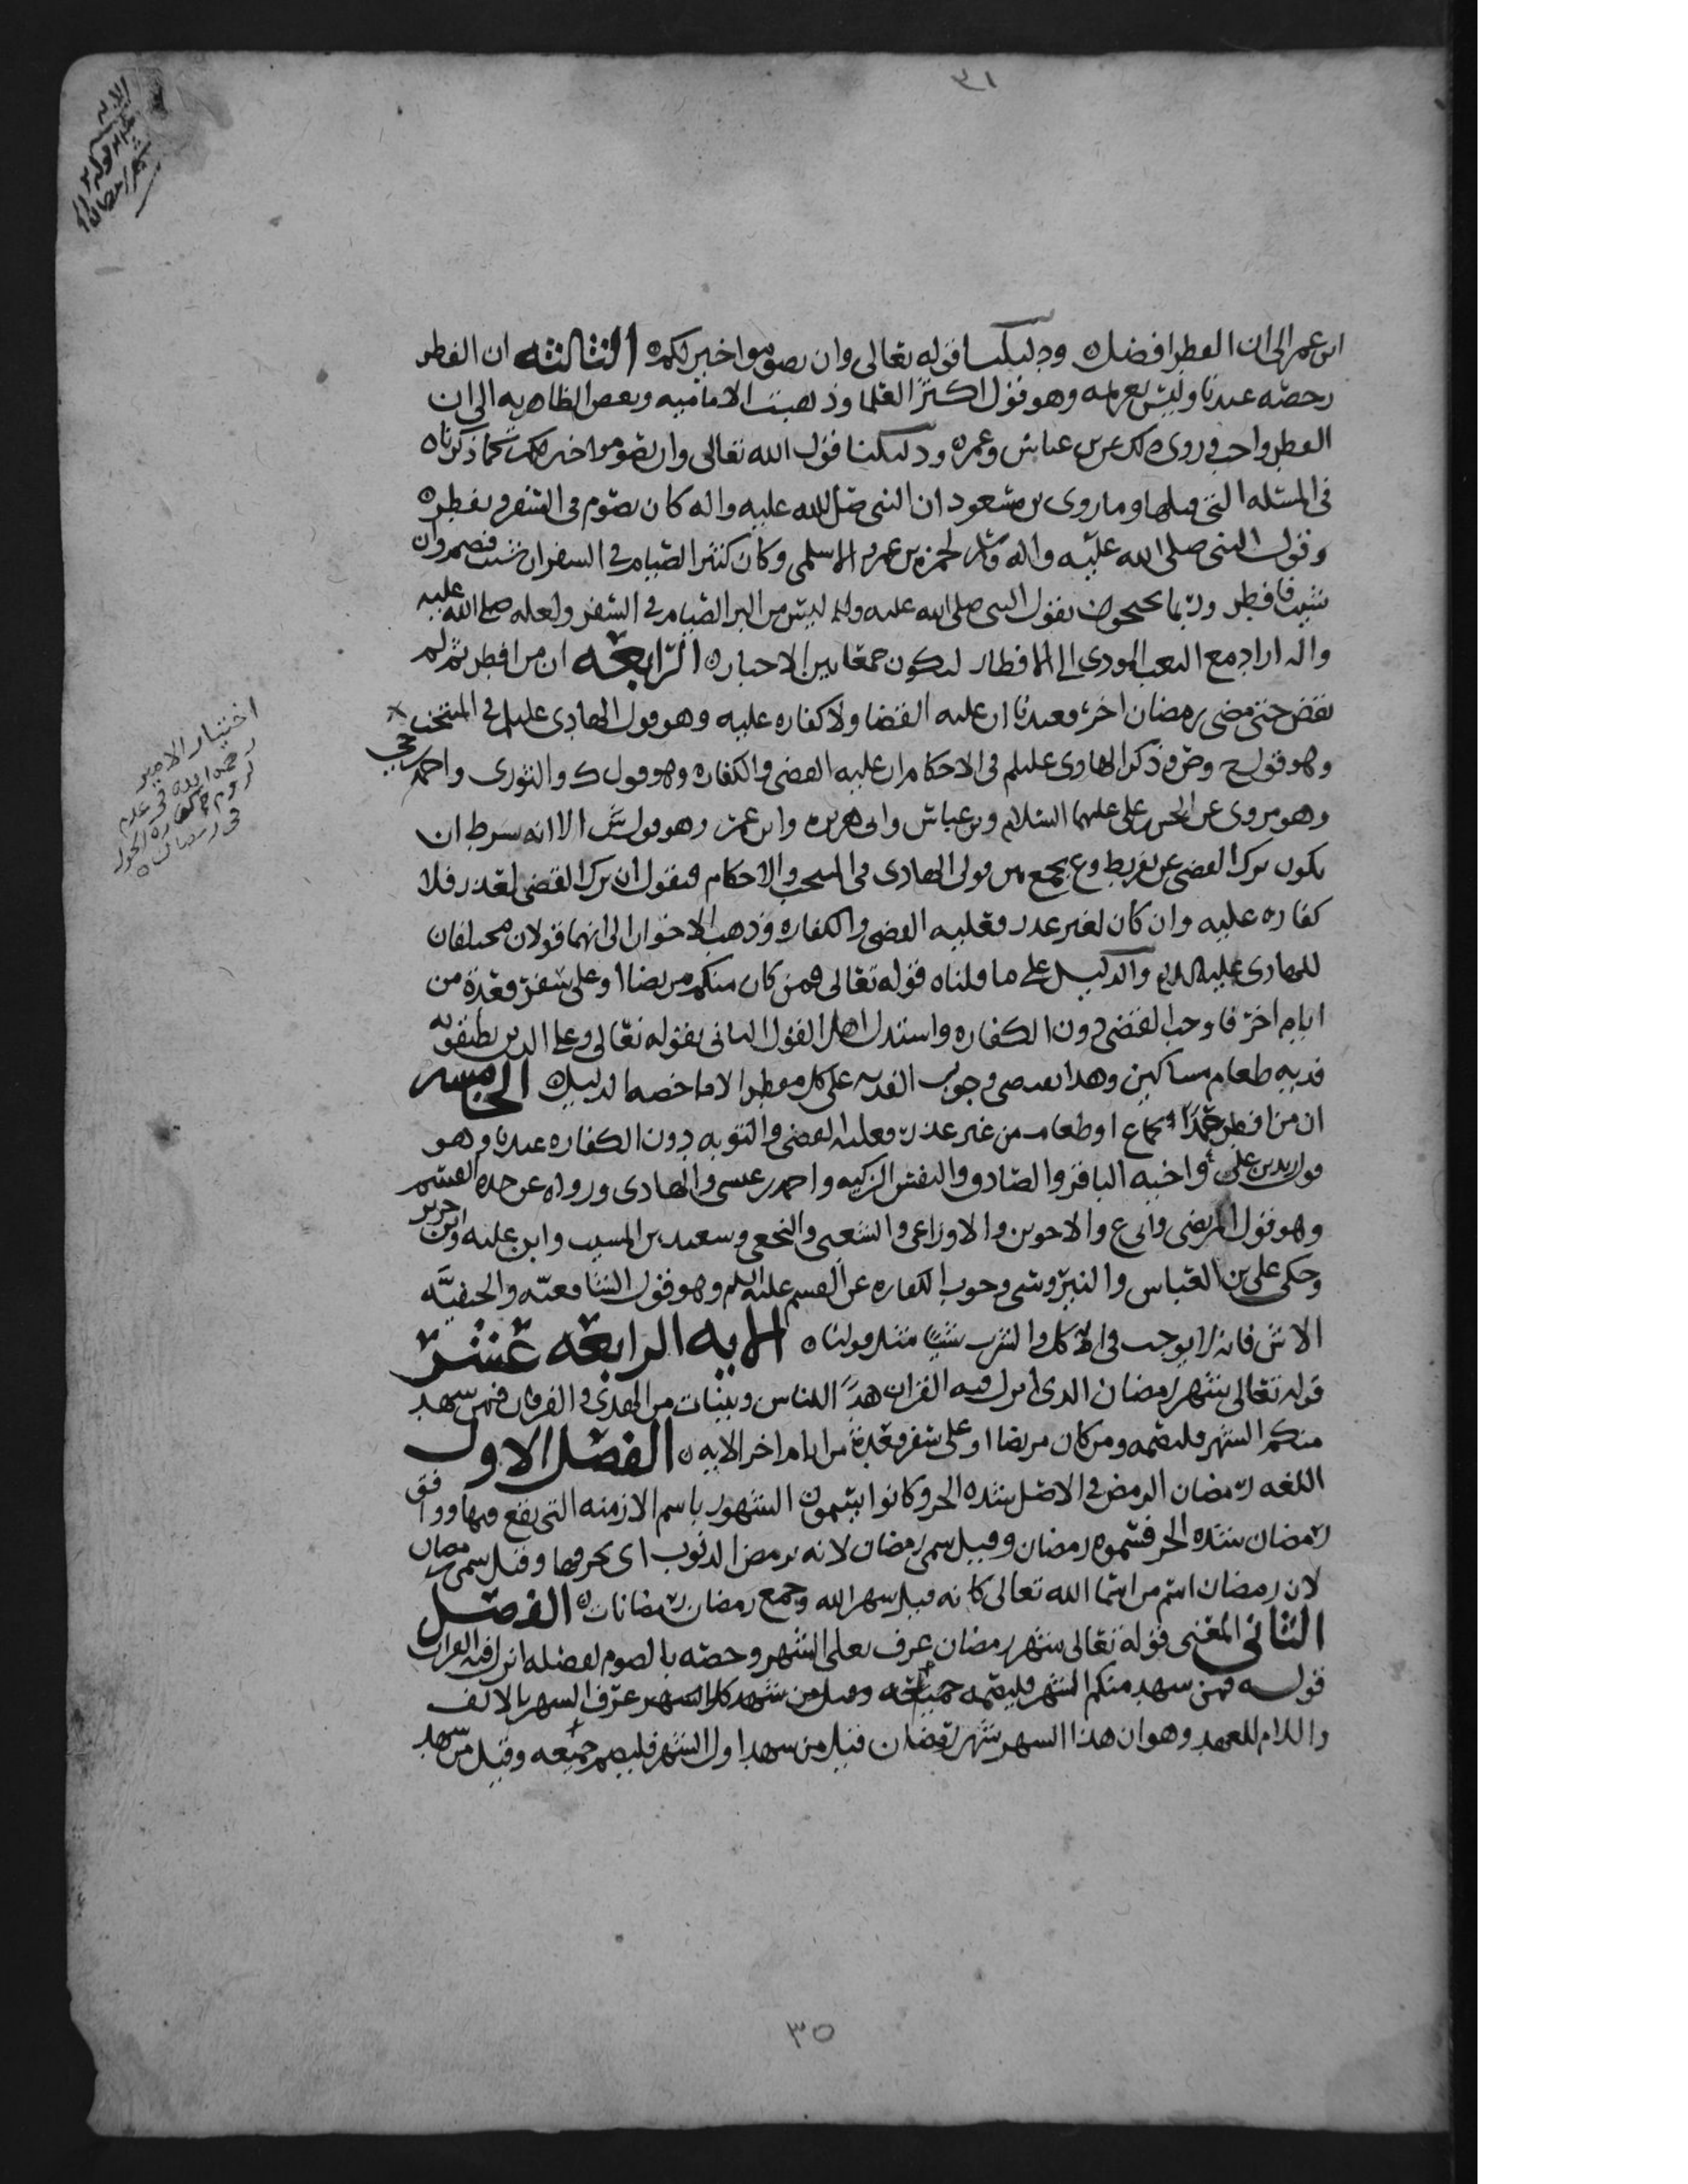 ٣١
الايه
قوله
شهر رمضان
ابن عمر الى ان الفطر افضل ودليلنا قوله تعالى وان تصوموا خير لكم الثالثه ان الفطر
رخصه عندنا وليس بعزيمه وهو قول اكثر العلما وذهبت الاماميه وبعض الظاهريه الى ان
الفطر واجب وروي ذلك عن بن عباس وعمر ودليلنا قول الله تعالى وان تصوموا خير لكم كما ذكرناه
في المسئله التي قبلها وما روى بن مسعود ان النبي صلى الله عليه واله كان يصوم في السفر ويفطر
وقول النبي صلى الله عليه واله وسلم لحمزه بن عمرو الاسلمي وكان كثير الصيام في السفر ان شيت فصم وان
شيت فافطر وربما يحتجون بقول النبي صلى الله عليه واله ليس من البر الصيام في السفر ولعله صلى الله عليه
واله اراد مع التعب المودي الى الافطار ليكون جمعا بين الاخبار الرابعه ان من افطر ثم لم
يقض حتى مضى رمضان اخر فعندنا ان عليه القضا ولا كفاره عليه وهو قول الهادي عليلم في المنتخب
وهو قول ح وص وذكر الهادي عليلم في الاحكام ان عليه القضى والكفاره وهو قول ك والثوري واحمد
وهو مروي عن الحسن بن علي عليهما السلام وبن عباس وابي هريره وابن عمر وهو قول ش الا انه شرط ان
يكون ترك القضى عن تفريط وع يجمع بين قولي الهادي في المنتخب والاحكام فيقول ان ترك القضى لعذر فلا
كفاره عليه وان كان لغير عذر فعليه القضى والكفاره وذهب الاخوان الى انهما قولان مختلفان
للهادي عليه السلام والدليل على ما قلناه قوله تعالى فمن كان منكم مريضا او على سفر فعدة من
ايام اخر فاوجب القضى دون الكفاره واستدل اهل القول الثاني بقوله تعالى وعلى الذين يطيقونه
فديه طعام مساكين وهذا يقتضي وجوب الفديه على كل مفطر الا ما خصه الدليل الخامسه
ان من افطر عمدا بجماع او طعام من غير عذر فعليه القضى والتوبه دون الكفاره عندنا وهو
قول زيد بن علي واخيه الباقر والصادق والنفس الزكيه واحمد بن عيسى والهادي ورواه عن جده القسم
وهو قول المرتضى وابي ع والاخوين والاوزاعي والشعبي والنخعي وسعيد بن المسيب وابن عليه وابن جرير
وحكى علي بن العباس والنيروسي وجوب الكفاره عن القسم عليه السلم وهو قول الشافعيه والحنفيه
الا ش فانه لا يوجب في الاكل والشرب شيا مثل قولنا الايه الرابعه عشر
قوله تعالى شهر رمضان الذي انزل فيه القران هدًا للناس وبينات من الهدى والفرقان فمن شهد
منكم الشهر فليصمه ومن كان مريضا او على سفر فعدة من ايام اخر الايه الفصل الاول
اللغه رمضان الرمض في الاصل شده الحر وكانوا يسمون الشهور باسم الازمنه التي تقع فيها ووافق
رمضان شده الحر فسموه رمضان وقيل سمي رمضان لانه يرمض الذنوب اي يحرقها وقيل سمي رمضان
لان رمضان اسم من اسما الله تعالى كانه قيل شهر الله وجمع رمضان رمضانات الفصل
الثاني المعنى قوله تعالى شهر رمضان عرف تعالى الشهر وخصه بالصوم لفضله انزل فيه القران
قوله فمن شهد منكم الشهر فليصمه جميعه وقيل من شهد كل الشهر عرف الشهر بالالف
واللام للعهد وهو ان هذا الشهر شهر رمضان قيل من شهد اول الشهر فليصم جميعه وقيل من شهد
اختيار الامير
رضوان الله في عدم
لزوم كفاره الحول
في رمضان
٣٥